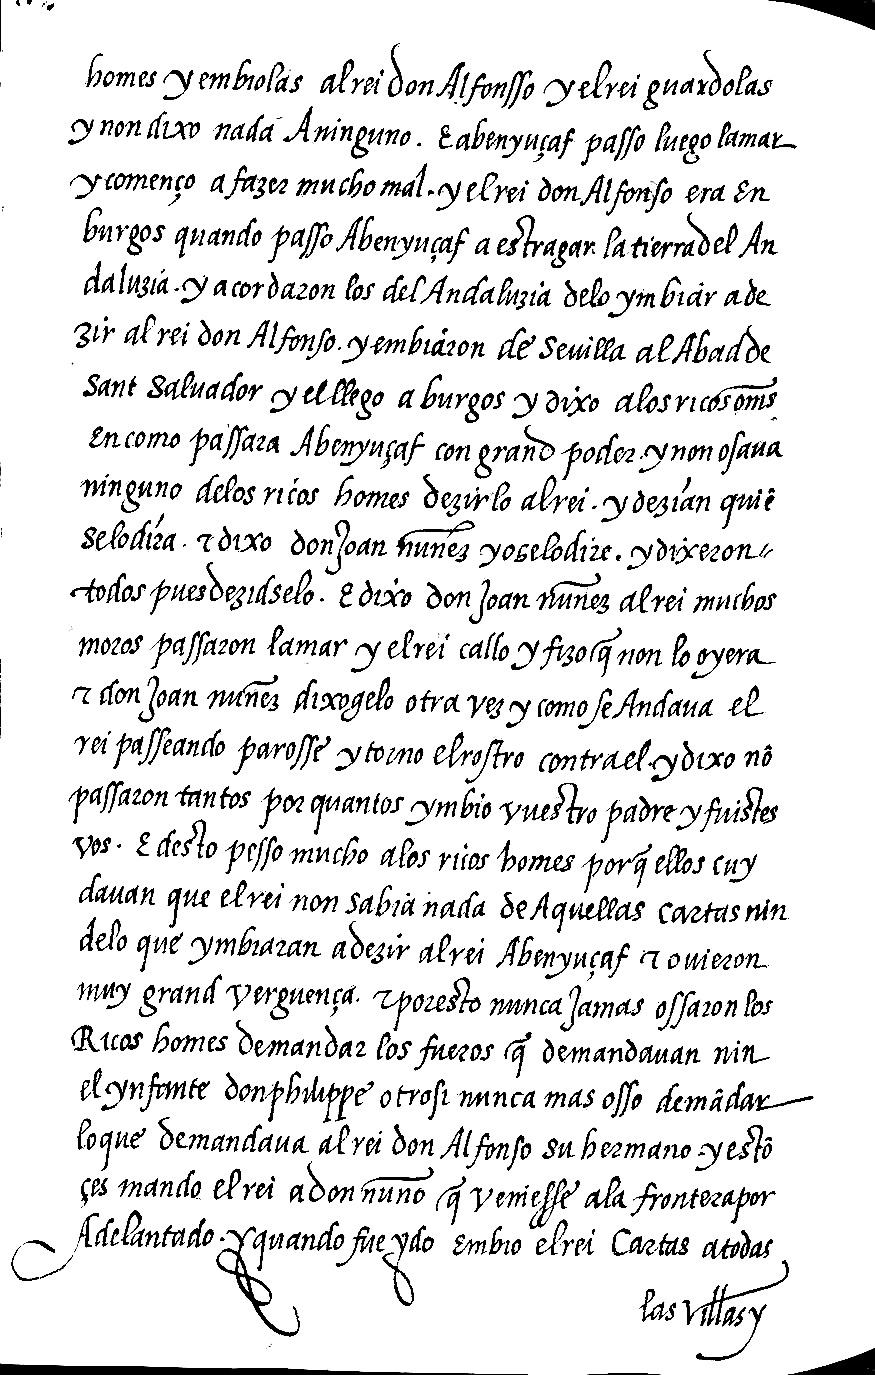 homes y embiolas al rei don Alfonsso y el rei guardolas
y non dixo nada A ninguno. E abenyuçaf passo luego la mar
y començo a fazer mucho mal. y el rei don Alfonso era En
burgos quando passo Abenyuçaf a estragar la tierra del An
daluzia. y acordaron los del Andaluzia delo ymbiar a de
zir al rei don Alfonso. y embiaron de Sevilla al Abad de
Sant Salvador y el llego a burgos y dixo a los ricos oms
En como passara Abenyuçaf con grand poder. y non osava
ninguno delos ricos homes dezirlo al rei. y dezian quiē
Se lo dira. τ dixo don Joan nunez yo gelo dire. y dixeron
todos pues dezidselo. E dixo don Joan nunez al rei muchos
moros passaron la mar y el rei callo y fizo q̄ non lo oyera
τ don Joan nunez dixogelo otra vez y como se Andava el
rei passeando parosse y torno el rostro contra el. y dixo nō
passaron tantos por quantos ymbio vuestro padre y fuistes
vos. E desto pesso mucho a los ricos homes porq̄ ellos cuy
davan que el rei non sabia nada de Aquellas cartas nin
delo que ymbiaran a dezir al rei Abenyuçaf τ ovieron
muy grand verguença. τ por esto nunca jamas ossaron los
Ricos homes demandar los fueros q̄ demandavan nin
el ynfante don philippe otrosi nunca mas osso demādar
lo que demandava al rei don Alfonso su hermano. y estō
çes mando el rei a don nuno q̄ veniesse a la frontera por
Adelantado. y quando fue ydo Embio el rei Cartas a todas
las villas y